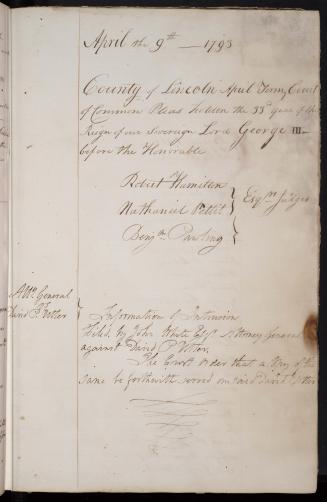 April the 9th — 1793
County of Lincoln April Term, Court
of Common Pleas holden the 33d year of the
Reign of our Sovereign Lord George III —
before the Honorable
Robert Hamilton
Nathaniel Pettit } Esqrs Judges
Benjn Pawling
Atty. General
vs
David P. Votter
Information of Intrusion
Filed, by John White Esqr Attorney General
against David P. Votter.
The Court order that a Copy of the
same be forthwith served on said David